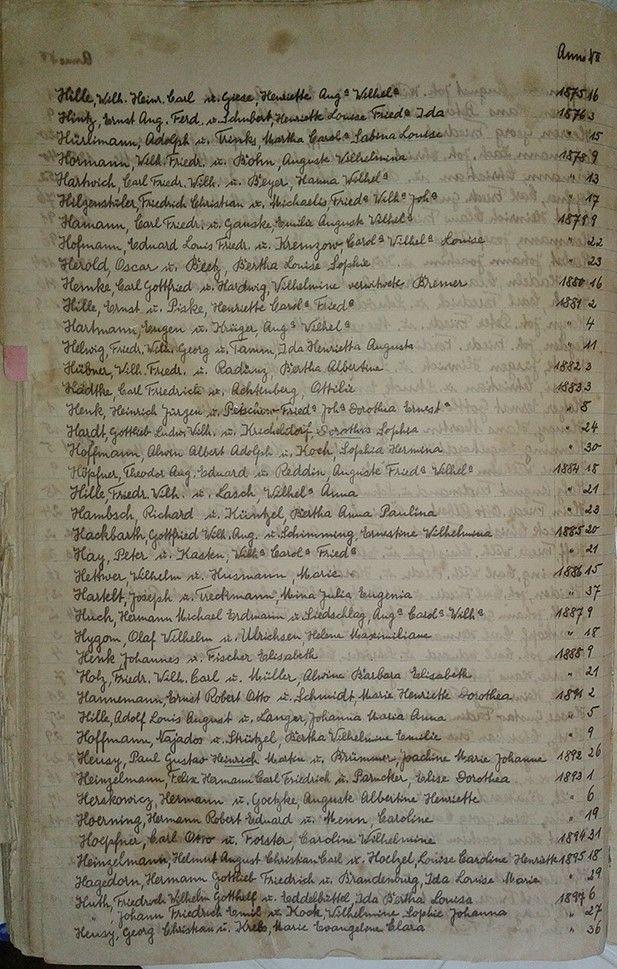 Anno №
Hille, Wilh. Heinr. Carl u. Giese, Henriette Augᵃ Wilhelᵃ 1875 16
Hintz, Ernst Aug. Ferd. u. Schubert, Henriette Louise Friedᵃ Ida 1876 3
Hürlimann, Adolph u. Trinks, Martha Carolᵃ Sabina Louise " 15
Hörmann, Wilh. Friedr. u. Böhn, Auguste Wilhelmina 1878 9
Hartwich, Carl Friedr. Wilh. u. Beyer, Hanna Wilhelᵃ " 13
Hilgenstüler, Friedrich Christian u. Michaelis Friedᵃ Wilhᵃ Johᵃ " 17
Hamann, Carl Friedr. u. Ganske, Emilie Auguste Wilhelᵃ 1879 9
Hofmann, Eduard Louis Friedr. u. Krenzow Carolᵃ Wilhelᵃ Louise " 22
Herold, Oscar u. Beetz, Bertha Louise Sophie " 23
Hernke Carl Gottfried u. Hardwig, Wilhelmine verwitwete Bremer 1880 16
Hille, Ernst u. Piske, Henriette Carolᵃ Friedᵃ 1881 2
Hartmann, Eugen u. Krüger Augᵃ Wilhelᵃ " 4
Helwig, Friedr. Wilh. Georg u. Tamm, Ida Henrietta Augusta " 11
Hübner, Wilh. Friedr. u. Radünz, Bertha Albertine 1882 3
Hädtke, Carl Friedrich u. Achtenberg, Ottilie 1883 3
Henk, Heinrich Jürgen, u. Petschow Friedᵃ Johᵃ Dorothea Ernestᵃ " 8
Hardt, Gottlieb Ludw. Wilh. u. Kricheldorf, Dorothea Sophia " 24
Hoffmann, Alwin Albert Adolph u. Koch, Sophia Hermina " 30
Höpfner, Theodor Aug. Eduard u. Reddin, Auguste Friedᵃ Wilhelᵃ 1884 18
Hille, Friedr. Wilh. u. Lasch, Wilhelᵃ Anna " 21
Hambsch, Richard u. Küntzel, Bertha Anna Paulina " 23
Hackbarth, Gottfried Wilh. Aug. u. Schimming, Ernestine Wilhelmina 1885 20
Hay, Peter u. Kasten, Wilhᵃ Carolᵃ Friedᵃ " 21
Wilhelm u. Husmann, Marie 1886 15
Hartelt, Joseph u. Treckmann, Mina Julia Eugenia " 37
Huch, Hermann Michael Erdmann u. Liedschlag, Augᵃ Carolᵃ Wilhᵃ 1887 9
Hygom, Olaf Vilhelm u. Ulrichsen Helene Maximiliane " 18
Henk Johannes u. Fischer Elisabeth 1888 9
Holz, Friedr. Wilh. Carl u. Müller, Alwine Barbara Elisabeth " 21
Hannemann, Ernst Robert Otto u. Schmidt, Marie Henriette Dorothea 1891 2
Hille, Adolf Louis August u. Langer, Johanna Maria Anna " 5
Hoffmann, Najados u. Strützel, Bertha Wilhelmine Emilie " 9
Hensy, Paul Gustav Heinrich Martin u. Brümmer, Joachine Marie Johanne 1892 26
Heinzelmann, Felix Hermann Carl Friedrich u. Parucker, Elise Dorothea 1893 1
Herskowicz, Hermann u. Goetzke, Auguste Albertine Henriette " 6
Hoerning, Hermann Robert Eduard u. Menn, Caroline " 19
Hoepfner, Carl Otto u. Forster, Caroline Wilhelmine 1894 31
Heinzelmann, Helmut August Christian Carl u. Hoelzel, Louise Caroline Henriette 1895 18
Hagedorn, Hermann Gottlieb Friedrich u. Brandenburg, Ida Louise Marie " 29
Huth, Friedrich Wilhelm Gotthelf u. Eddelbüttel, Ida Bertha Louisa 1897 6
" Johann Friedrich Emil u. Kock, Wilhelmine Sophie Johanna " 27
Hensy, Georg Christian u. Krebs, Marie Evangeline Clara " 36